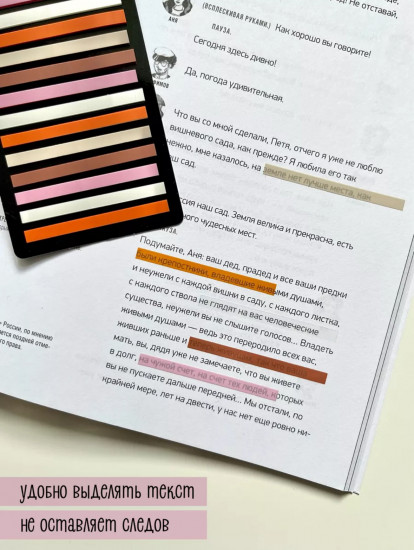 не отставай,
(ВСПЛЕСКИВАЯ РУКАМИ.) Как хорошо вы говорите!
АНЯ
ПАУЗА.
Сегодня здесь дивно!
Да, погода удивительная.
Что вы со мной сделали, Петя, отчего я уже не люблю
вишневого сада, как прежде? Я любила его так
мне казалось, на земле нет лучше места, как
сад.
наш сад. Земля велика и прекрасна, есть
чудесных мест.
Подумайте, Аня: ваш дед, прадед и все ваши предки
были крепостники, владевшие живыми душами,
и неужели с каждой вишни в саду, с каждого листка,
с каждого ствола не глядят на вас человеческие
существа, неужели вы не слышите голосов... Владеть
живыми душами — ведь это переродило всех вас,
живших раньше и
мать, вы, дядя уже не замечаете, что вы живете
в долг, на чужой счет, на счет тех людей, которых
вы не пускаете дальше передней... Мы отстали, по
крайней мере, лет на двести, у нас нет еще ровно ни-
России, по мнению
права.
удобно выделять текст
не оставляет следов